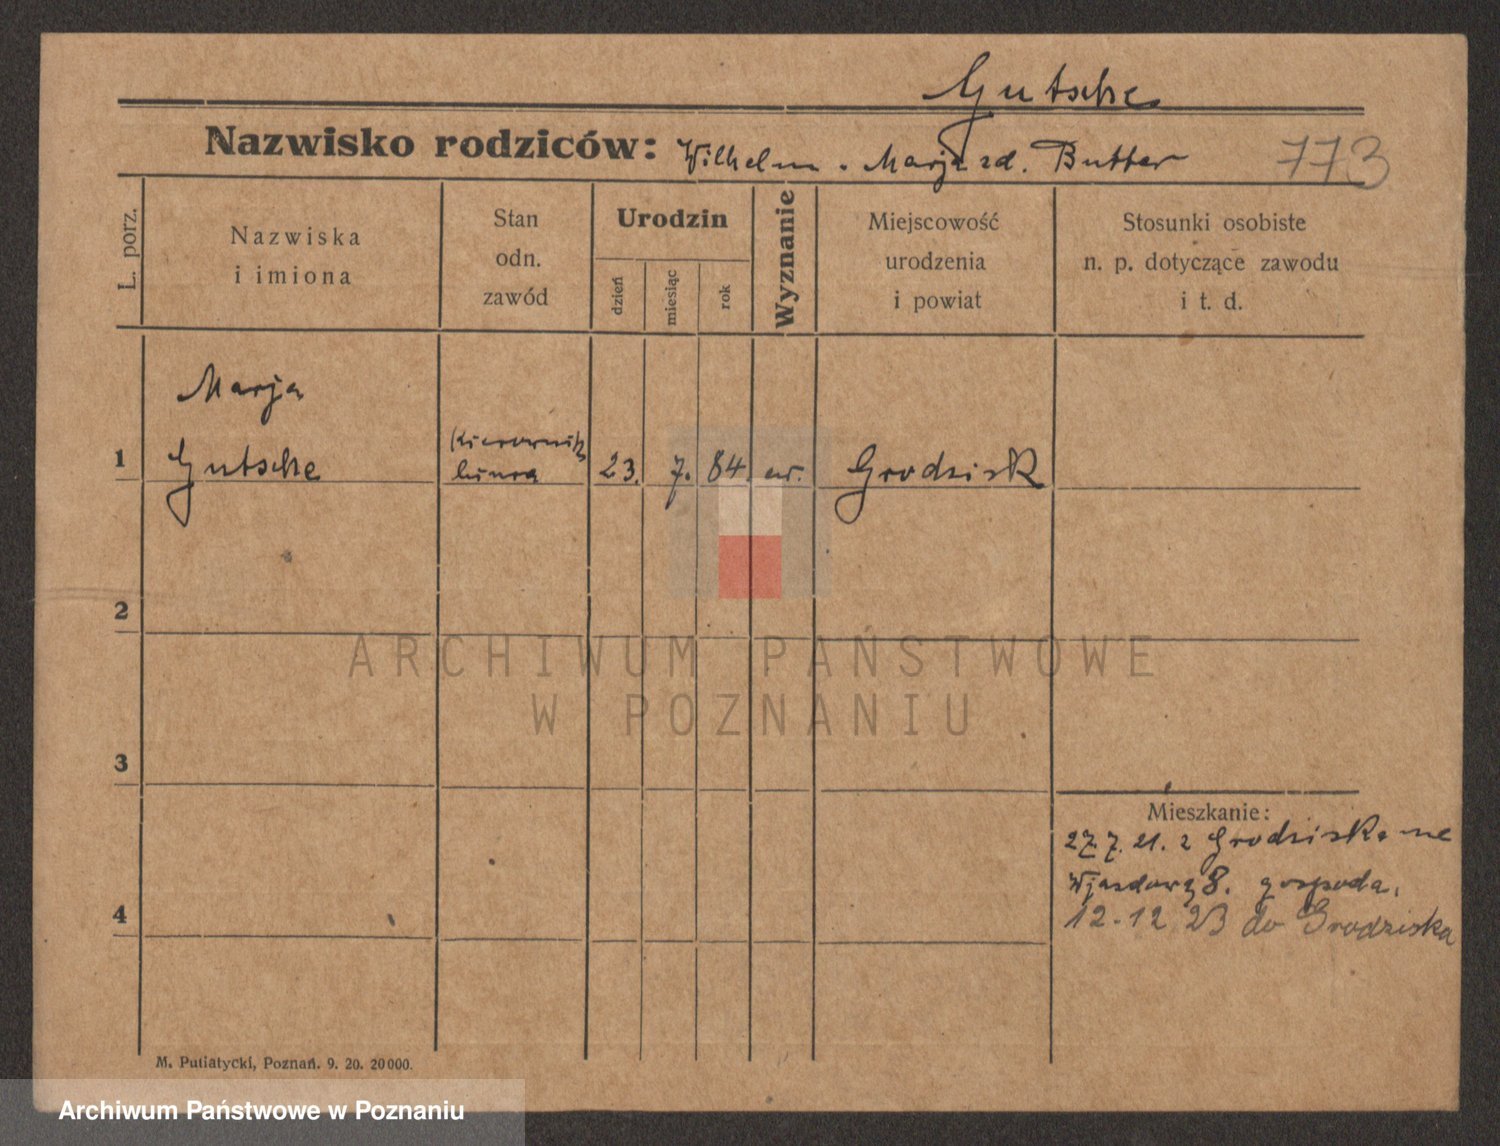 Gutsche
Nazwisko rodziców: Wilhelm - Marja zd. Butter 773
L. porz.
Nazwiska
i imiona
Stan
odn.
zawód
Urodzin
dzień
miesiąc
rok
Wyznanie
Miejscowość
urodzenia
i powiat
Stosunki osobiste
n. p. dotyczące zawodu
i t. d.
1
Marja
Gutsche
Kierownik
biura
23. 7. 84. ew. Grodzisk
2
ARCHIWUM PAŃSTWOWE
W POZNANIU
3
Mieszkanie:
27.7.21. z Grodziska
Wjazdowa 8. gospoda.
12-12 23 do Grodziska
4
M. Putiatycki, Poznań. 9. 20. 20000.
Archiwum Państwowe w Poznaniu